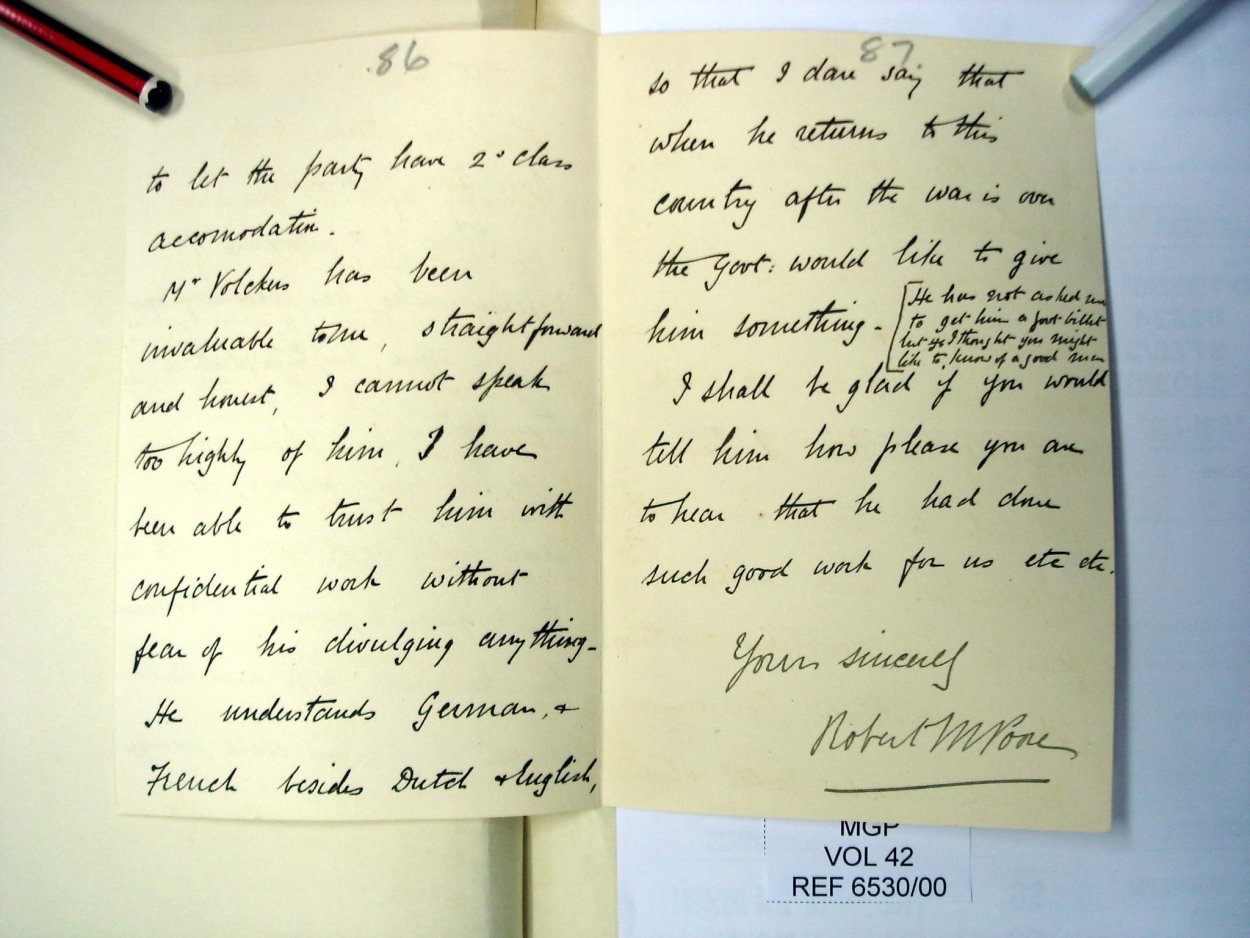 86
to let the party have 2d class
accomodation.
Mr Volckers has been
invaluable to me, straightforward
and honest, I cannot speak
too highly of him, I have
been able to trust him with
confidential work without
fear of his divulging anything -
He understands German, &
French besides Dutch & English,
87
so that I dare say that
when he returns to this
country after the war is over
the Govt: would like to give
him something -
[He has not asked me
to get him a Govt billet
but I thought you might
like to know of a good man
I shall be glad if you would
tell him how please you are
to hear that he had done
such good work for us etc etc.
Yours sincerely
Robert M Poore
MGP
VOL 42
REF 6530/00